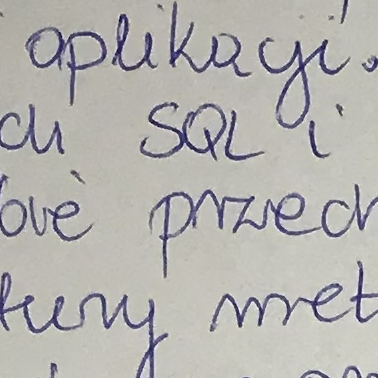 aplikacji.
ch SQL i
owe przech
tury met